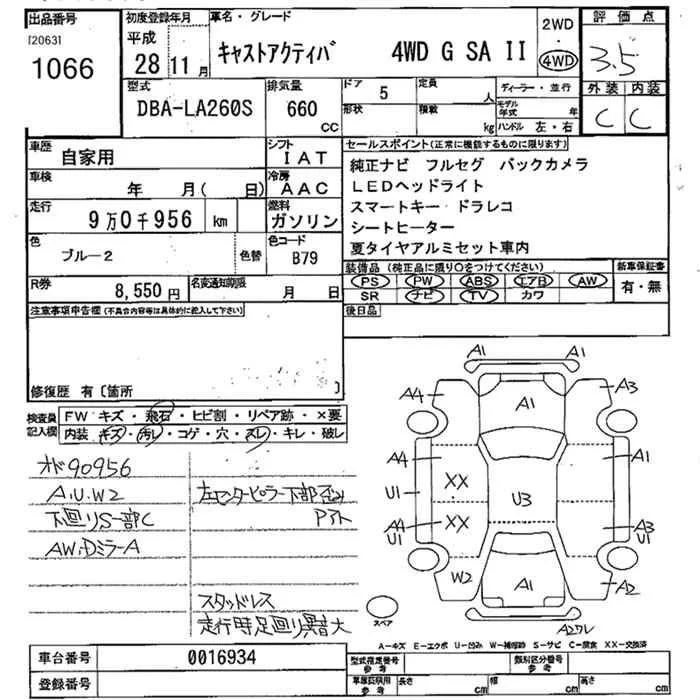 出品番号 初度登録年月 車名・グレード 2WD 評価点
[2063] 平成 ・ 3.5
1066 28 11月 キャストアクティバ 4WD G SA II 4WD
型式 排気量 ドア 5 定員 人 ディーラー・並行 外装 内装
DBA-LA260S 660 cc 形状 積載 kg モデル年式 年 C C
ハンドル 左・右
車歴 自家用 シフト IAT セールスポイント(正常に機能するものに限ります)
車検 年 月( 日) 冷房 AAC 純正ナビ フルセグ バックカメラ
LEDヘッドライト
走行 9万0千956 km 燃料 ガソリン スマートキー ドラレコ
シートヒーター
色 ブルー2 色替 色コード B79 夏タイヤアルミセット車内
装備品 (純正品に限り○をつけてください) 新車保証書
R券 8,550円 名変通知期限 月 日 PS PW ABS エアB AW 有・無
SR ナビ TV カワ
注意事項申告欄(不具合内容等は具体的に記入して下さい) 後日品
修復歴 有〔箇所 〕
検査員記入欄 FW キズ・飛石・ヒビ割・リペア跡・×要
内装・キズ・汚レ・コゲ・穴・スレ・キレ・破レ
オド90956
A.U.W2 左センターピラー下部歪み
下廻りS一部C Pアト
AW.DミラーA
スタッドレス
走行時足廻り異音大
A1 A1
A4 A1 A3
A4 XX A1
U1 U3
A1 U1 XX A3 U1
W2 A1 A2
スペア A2ワレ
A-キズ E-エクボ U-凹み W-補修跡 S-サビ C-腐食 XX-交換済
車台番号 0016934 型式指定番号 参考 類別区分番号 参考
登録番号 車庫証明用 参考 長さ cm 幅 cm 高さ cm